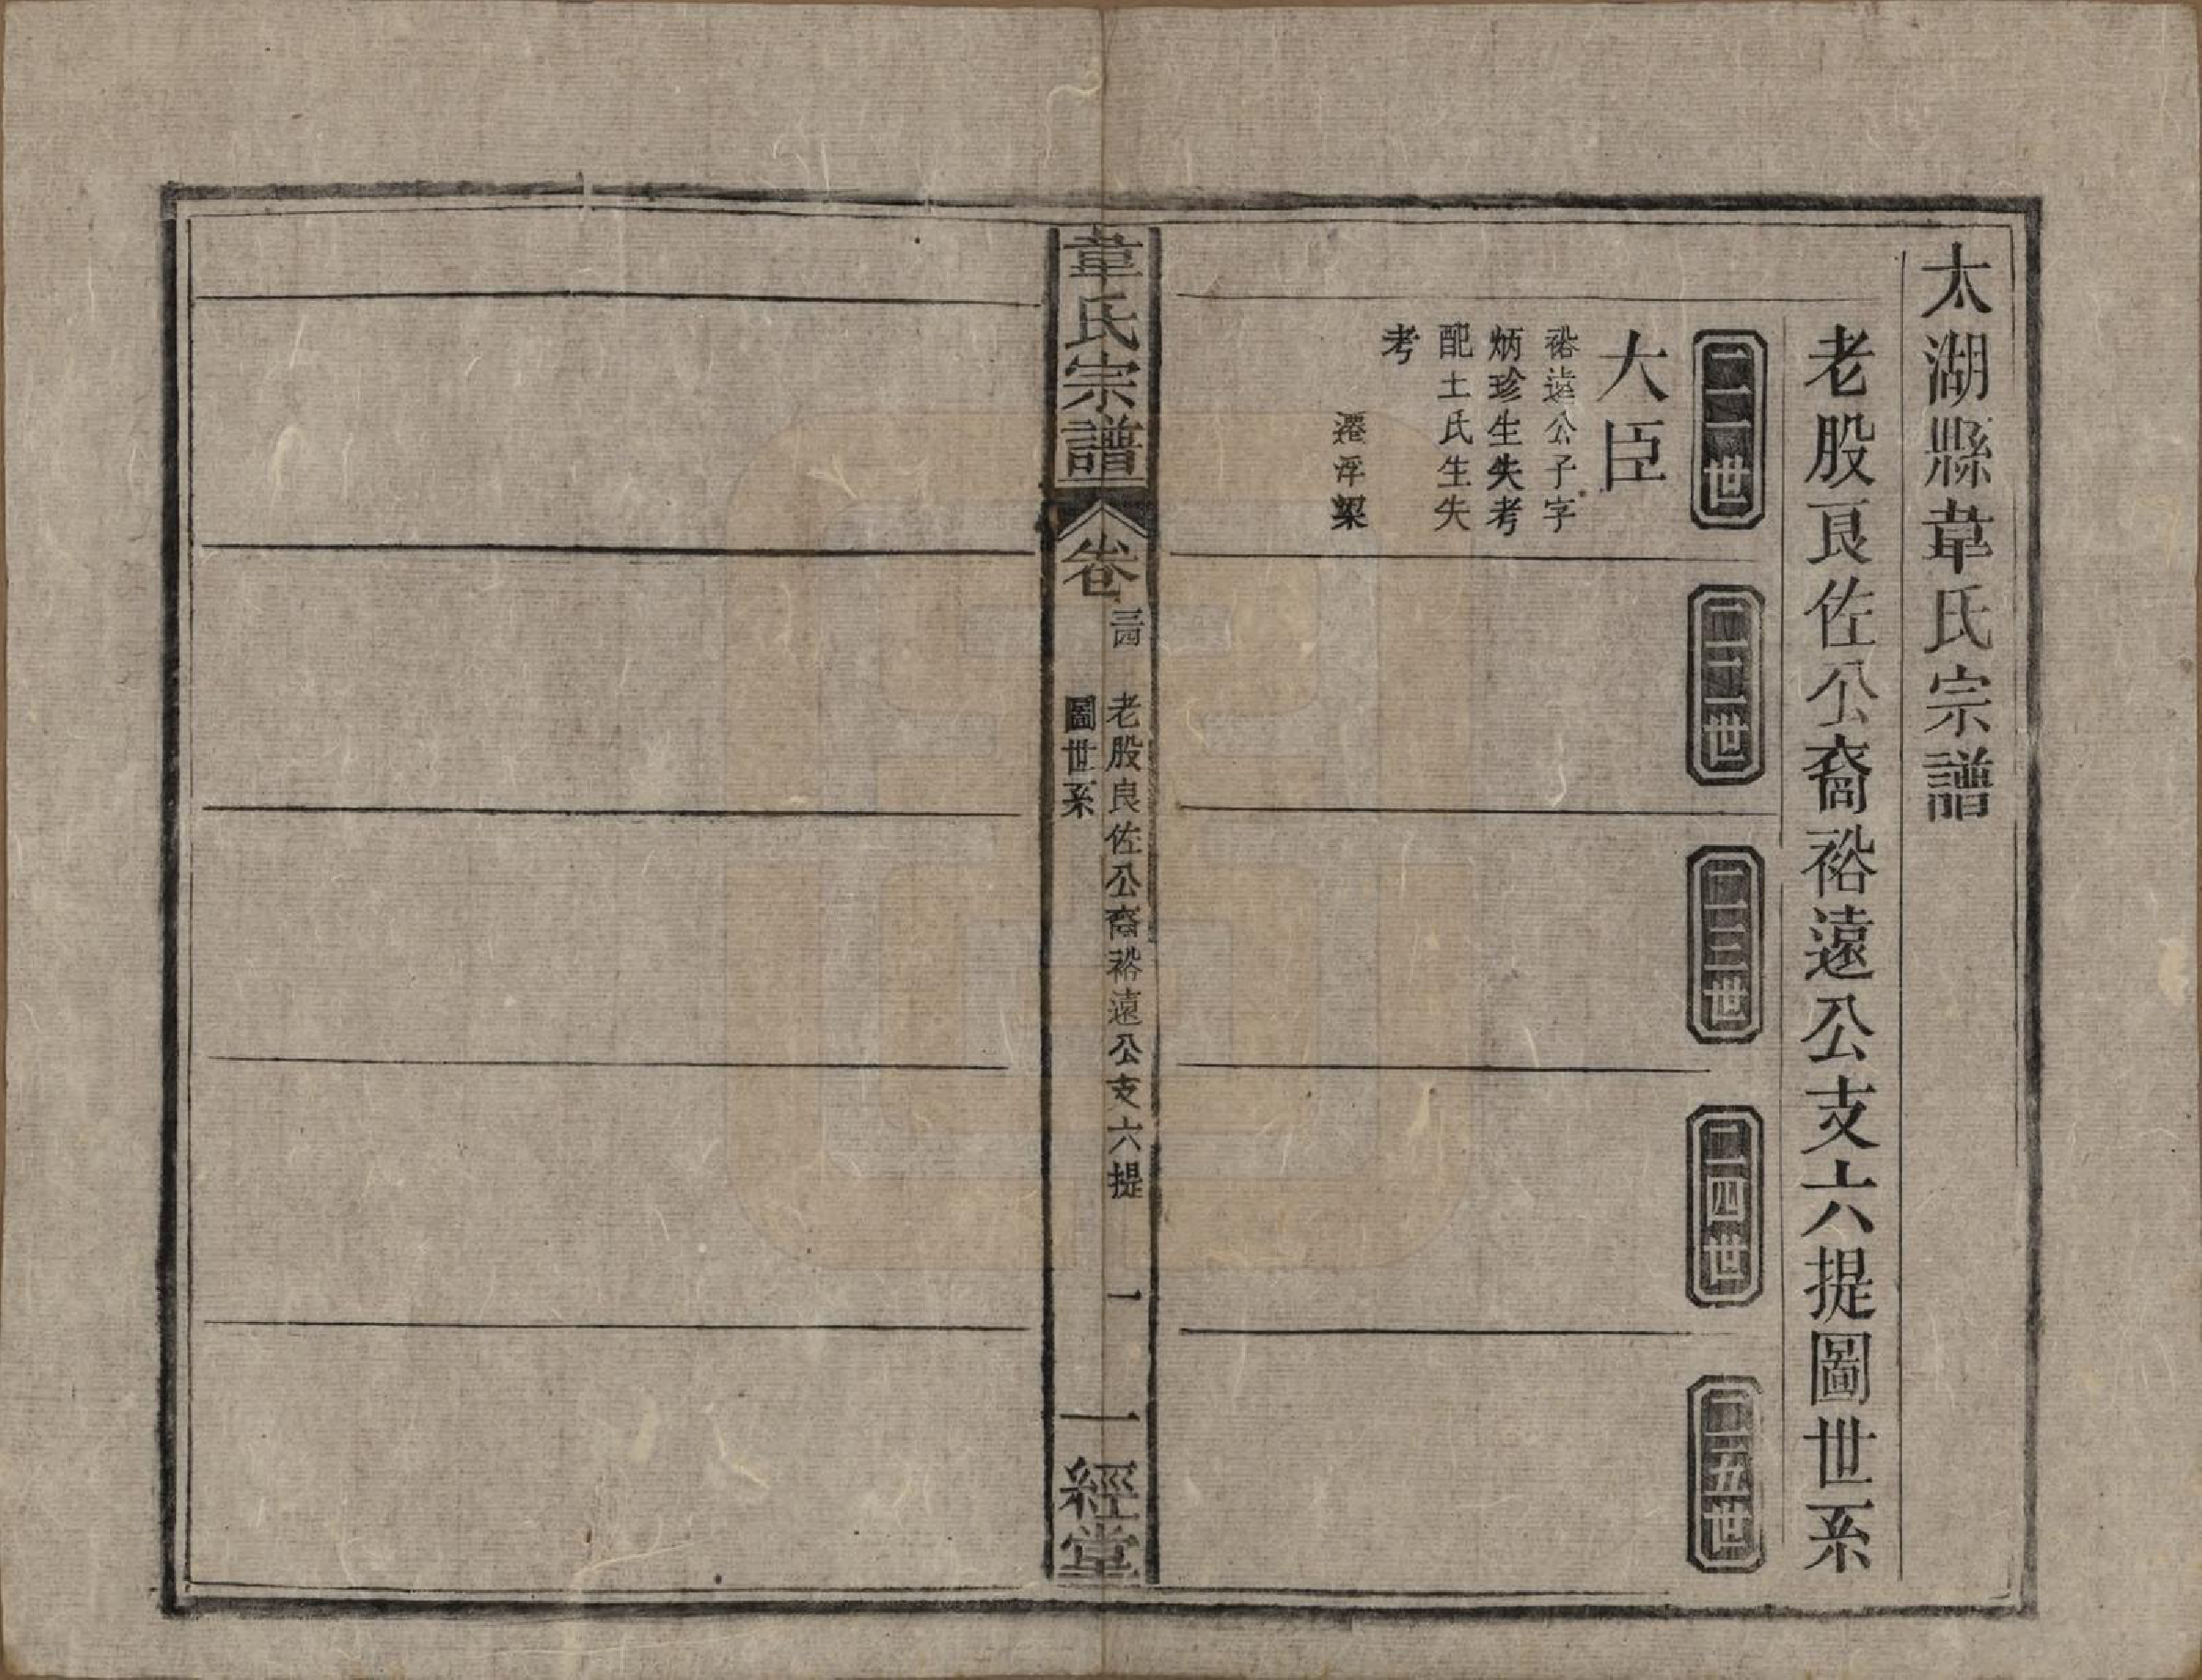 太湖縣韋氏宗譜
老股良佐公裔裕遠公支六提圖世系
二一世
二二世
二三世
二四世
二五世
大臣
裕遠公子字
炳珍生失考
配土氏生失
考
遷浮梁
韋氏宗譜
卷三四
老股良佐公裔裕遠公支六提
圖世系
一
一經堂